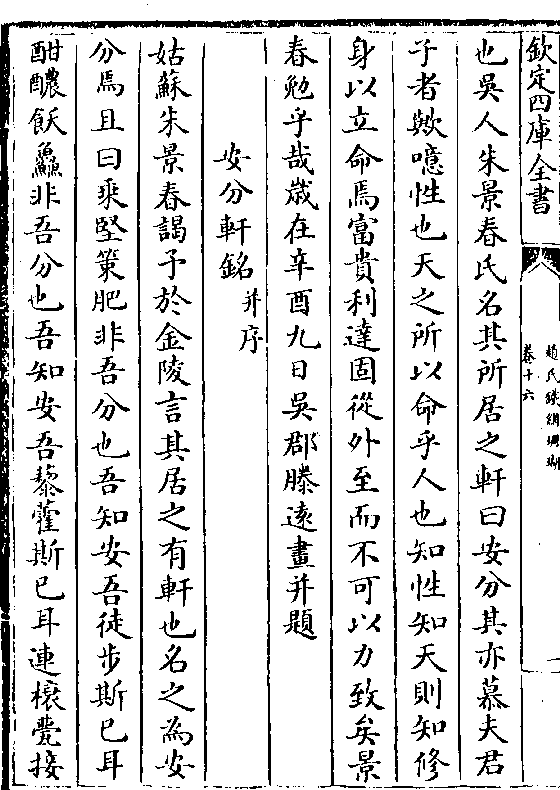 欽定四庫全書
趙氏鐵網珊瑚
卷十六
也吳人朱景春氏名其所居之軒曰安分其亦慕夫君
子者歟噫性也天之所以命乎人也知性知天則知修
身以立命焉富貴利達固從外至而不可以力致矣景
春勉乎哉嵗在辛酉九日吳郡滕遠畫并題
安分軒銘并序
姑蘇朱景春謁予於金陵言其居之有軒也名之為安
分焉且曰乘堅策肥非吾分也吾知安吾徒步斯已耳
酣醲飫鱻非吾分也吾知安吾藜藿斯已耳連榱甍接